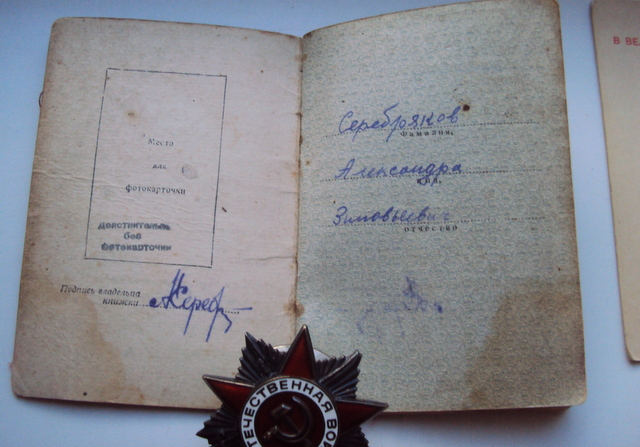 Место
для
фотокарточки
Действительно
без
фотокарточки
Подпись владельца
книжки
Серебряков
Фамилия,
Александра
имя,
Зиновьевич
отчество
ОТЕЧЕСТВЕННАЯ ВОЙ
В ВЕ